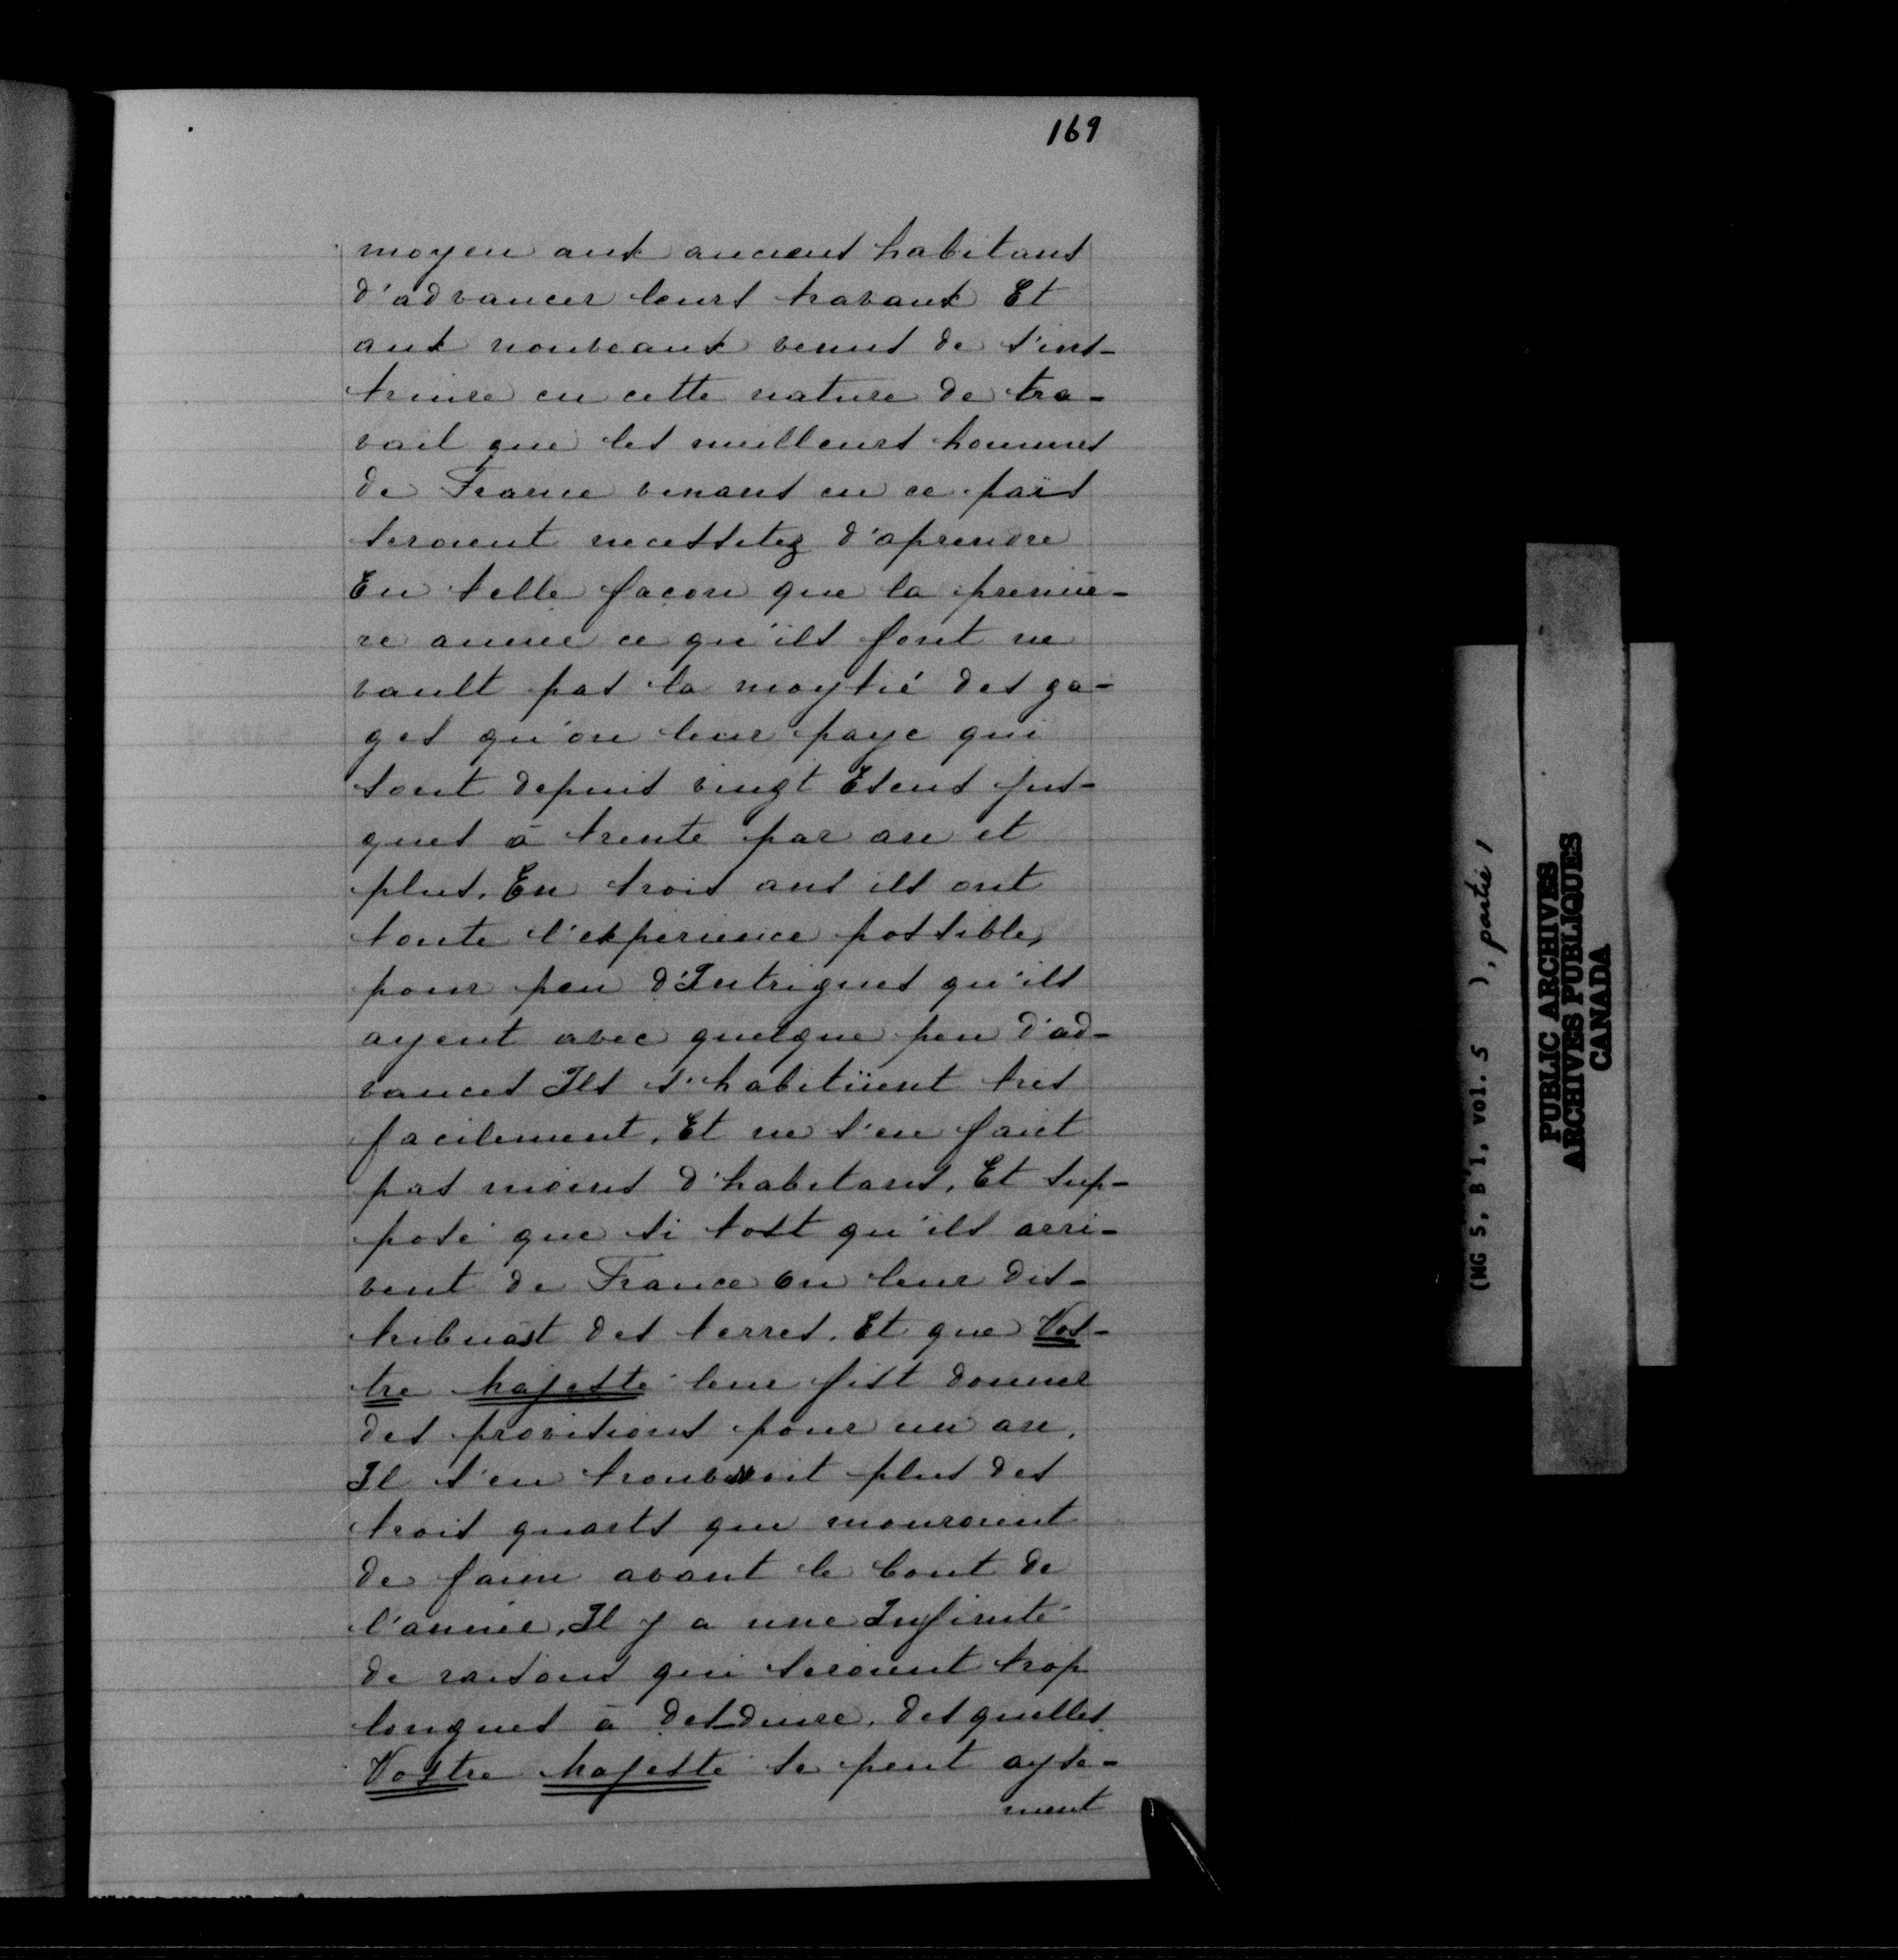 169
moyen aux anciens habitans
d'advancer leurs travaux Et
aux nouveaux venus de s'ins-
truire en cette nature de tra-
vail que les meilleurs hommes
de France venans en ce païs
seroient necessitez d'aprendre
En telle façon que la premie-
re année ce qu'ils font ne
vault pas la moytié des ga-
ges qu'on leur paye qui
sont depuis vingt Escus jus-
ques à trente par an et
plus. En trois ans ils ont
toute l'experience possible,
pour peu d'Intrigues qu'ils
ayent avec quelque peu d'ad-
vances Ils s'habitüent tres
facilement, Et ne s'en faict
pas moins d'habitans, Et sup-
posé que si tost qu'ils arri-
vent de France on leur dis-
tribuast des terres. Et que Vos-
tre Majesté leur fist donner
des provisions pour un an,
Il s'en trouveroit plus des
trois quarts qui mouroient
de faim avant le bout de
l'année, Il y a une Infinité
de raisons qui seroient trop
longues à desduire, desquelles
Vostre Majesté se peut ayse-
ment
(MG 5, B 1, vol. 5 ), partie 1
PUBLIC ARCHIVES
ARCHIVES PUBLIQUES
CANADA